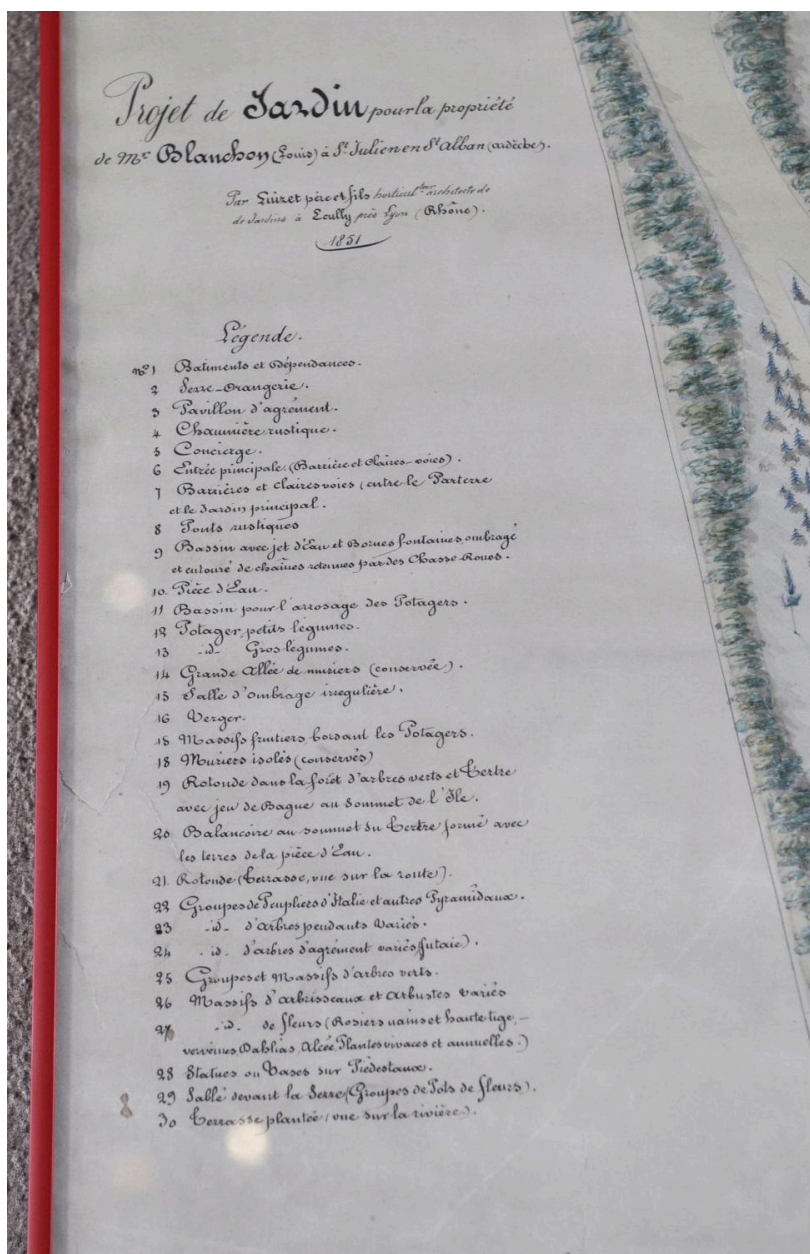 Projet de Jardin pour la propriété
de Mr Blanchon (Louis) à St Julien en St Alban (ardèche).
Par Luizet père et fils horticulteurs architecte de
de Jardins à Ecully près Lyon (Rhône).
1851
Légende.
No 1 Batiments et dépendances.
2 Serre-Orangerie.
3 Pavillon d'agrément.
4 Chaumière rustique.
5 Concierge.
6 Entrée principale (Barrière et Claires-voies).
7 Barrières et Claires voies (entre le Parterre
et le Jardin principal.
8 Ponts rustiques
9 Bassin avec jet d'Eau et Bornes fontaines, ombragé
et entouré de chaînes retenues par des Chasse-Roues.
10. Pièce d'Eau.
11 Bassin pour l'arrosage des Potagers.
12 Potager, petits légumes.
13 -id- Gros légumes.
14 Grande Allée de muriers (conservée).
15 Salle d'ombrage irregulière.
16 Verger.
18 Massifs fruitiers bordant les Potagers.
18 Muriers isolés (conservés)
19 Rotonde dans la forêt d'arbres verts et Tertre
avec jeu de Bague au sommet de l'Île.
20 Balancoire au sommet du Tertre formé avec
les terres de la pièce d'Eau.
21. Rotonde (Terrasse, vue sur la route).
22 Groupes de Peupliers d'Italie et autres Pyramidaux.
23 -id- d'Arbres pendants Variés.
24 -id- d'arbres d'agrément variés (futaie).
25 Groupes et Massifs d'arbres verts.
26 Massifs d'Arbrisseaux et Arbustes variés
27 -id- de fleurs (Rosiers nains et haute tige,-
vervèines, Dahlias, Alcée, Plantes vivaces et annuelles.)
28 Statues ou Vases sur Piédestaux.
29 Sablé devant la Serre (Groupes de Pots de fleurs).
30 Terrasse plantée (vue sur la rivière).